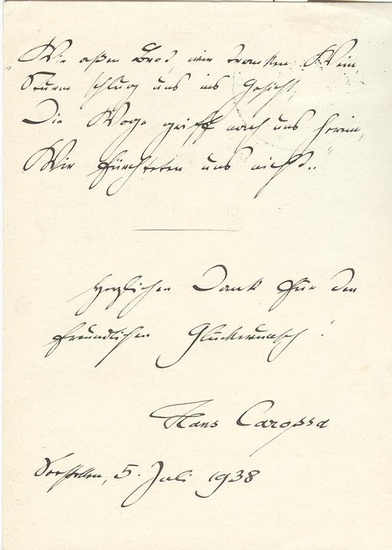 „Wir aßen Brod, wir tranken Wein,
Sturm schlug uns ins Gesicht,
Die Woge griff nach uns herein,
Wir fürchteten uns nicht."
Herzlichen Dank für den
freundlichen Glückwunsch!
Hans Carossa
Seestetten, 5. Juli 1938